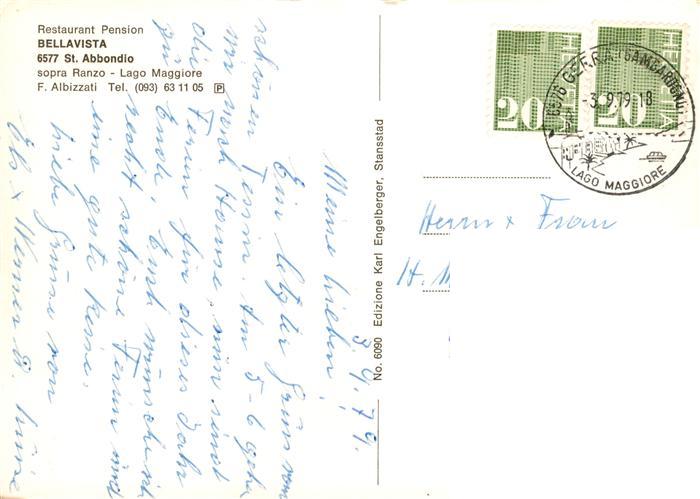 Restaurant Pension
BELLAVISTA
6577 St. Abbondio
sopra Ranzo - Lago Maggiore
F. Albizzati Tel. (093) 63 11 05 P
3.9.79.
Meine Lieben!
Ein letzter Gruss vom
schönen Tessin. Am 5-6 gehen
wir nach Hause, nun sind
die Ferien für dieses Jahr
zu Ende. Euch wünsche ich
recht schöne Ferien und
eine gute Reise.
Liebe Grüsse von
Werner
No. 6090 Edizione Karl Engelberger, Stansstad
HELVETIA 20
HELVETIA 20
6576 GERRA (GAMBAROGNO)
-3.9.79-18
LAGO MAGGIORE
Herrn + Frau
H. M